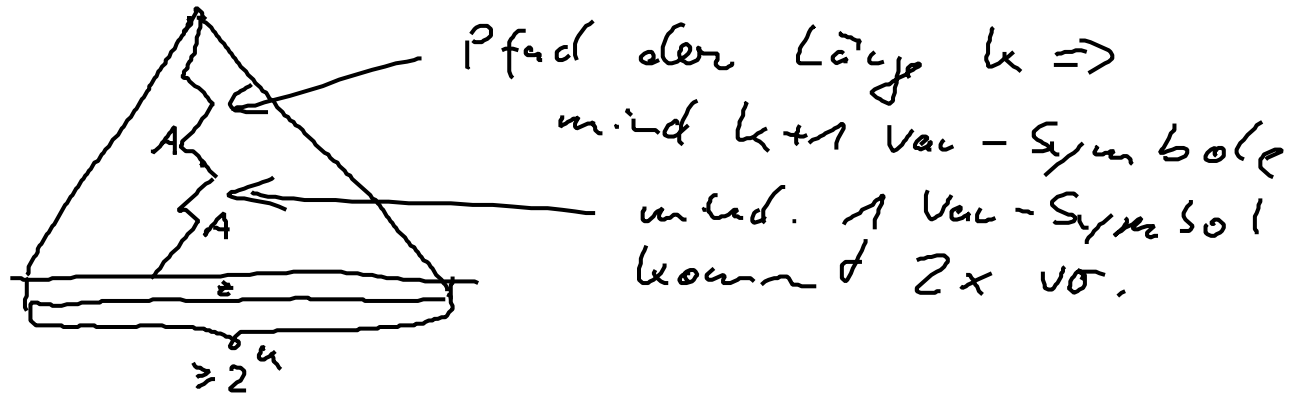 Pfad der Länge k ⇒
mind k+1 Var-Symbole
mind. 1 Var-Symbol
kommt 2x vor.
A
A
z
≥2^k